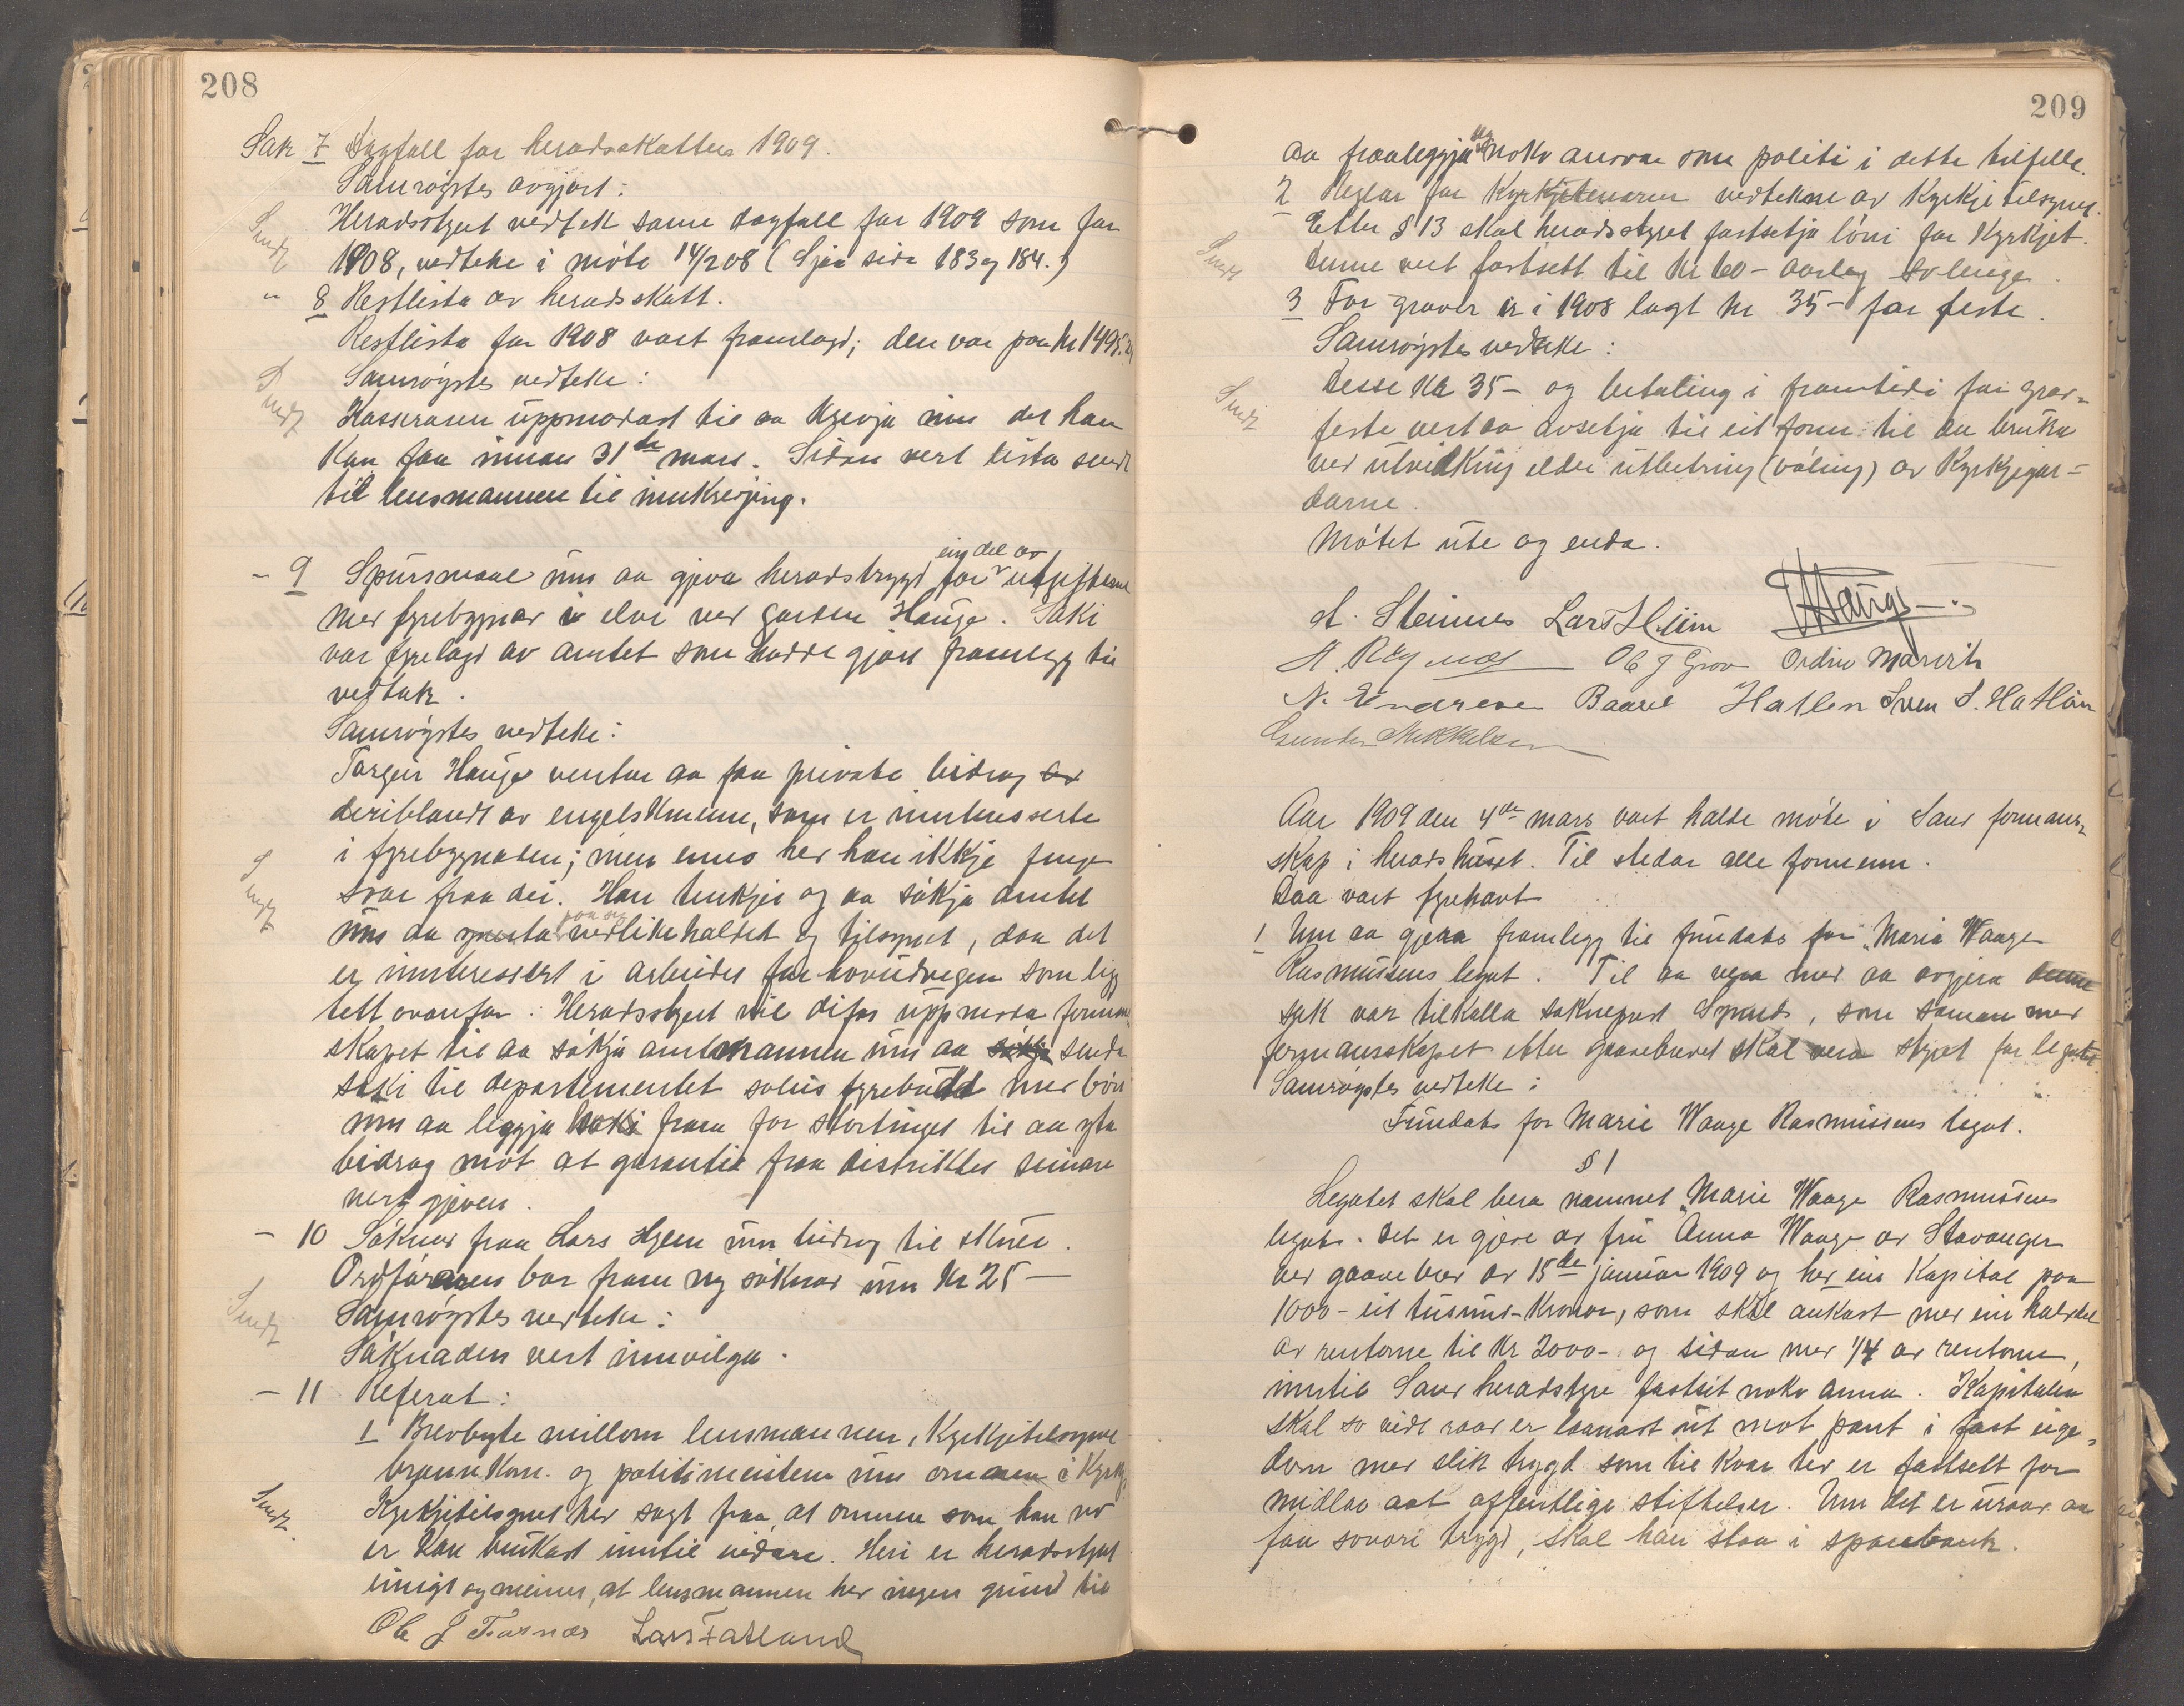 208
Sak 7 Dagfall for heradsskatten 1909.
Samrøystes avgjort:
Sendt
Heradsstyret vedtek same dagfall for 1909 som for
1908, vedteke i møte 14/2 08 (Sjaa sida 183 og 184.)
" 8 Restlista av heradsskatt.
Restlista for 1908 vart framlagd; den var paa kr 1495.
Samrøystes vedteke:
Sendt
Kasseraren uppmodast til aa krevja inn det han
kan faa innan 31te mars. Sidan vert lista sendt
til lensmannen til innkrevjing.
- 9 Spursmaal um aa gjeva heradstrygd for ein del av utgifterne
med fyrebygnad i elvi ved garden Hauge. Saki
var fyrelagd av amtet som hadde gjort framlegg til
vedtak.
Samrøystes vedteke:
Torger Hauge ventar aa faa private bidrag av
deriblandt av engelskmenn, som er interesserte
i fyrebygnaden; men enno her han ikkje fenge
Sendt
svar fraa dei. Han tenkjer og aa søkja amtet
um aa taka paa seg vedlikehaldet og tilsynet, daa det
er interessert i arbeidet for hovudvegen som ligg
tett ovanfor. Heradsstyret vil difor uppmoda formann-
skapet til aa søkja amtmannen um aa søkja senda
saki til departementet solus fyrebudd med bøn
um aa leggja saki fram for stortinget til aa yta
bidrag mot at garantie fraa distriktet seinare
vert gjeven.
- 10 Søknad fraa Lars Hjelm um bidrag til skule.
Ordføraren bar fram ny søknad um kr 25 —
Sendt
Samrøystes vedteke:
Søknaden vert innvilga.
- 11 Referat:
1 Brevbyte millom lensmannen, Kyrkjetilsynet
brannkom. og politimeisteren um omnen i Kyrkja
Sendt.
Kyrkjetilsynet her sagt fraa, at omnen som han no
er kan brukast inntil vidare. Heri er heradsstyret
einigt og meiner, at lensmannen her ingen grunn til
Ole J Fosnæs Lars Fatland
209
aa fraaleggja seg noko ansvar som politi i dette tilfelle.
2 Reglar for Kyrkjetenaren vedtekne av Kyrkjetilsynet.
Etter § 13 skal heradsstyret fastsetja løni for Kyrkjet.
Sendt
Denne vert fastsett til kr 60 - aarleg solenge.
3 For graver er i 1908 lagt kr 35 - for feste.
Samrøystes vedteke:
Sendt
Desse kr 35 - og betaling i framtidi for grav-
feste vert aa avsetja til eit fonn til aa bruka
ved utvidking elder utbetring (vøling) av Kyrkjegar-
darne.
Møtet ute og enda.
A. Steinnes Lars Hiim Hauge
Ole J Grov Ordin Marvik
N. Endresen Baard Hatlen Sven S. Hatløen
Gunder Mikkelsen
Aar 1909 den 4de mars vart halde møte i Saud formann-
skap i heradshuset. Til stedar alle formenn.
Daa vart fyrehavt
1 Um aa gjera framlegg til fundats for "Marie Waage
Rasmussens legat. Til aa vera med aa avgjera denne
sak var tilkalla sokneprest Synnes, som saman med
formannskapet etter gaavebrevet skal vera styret for legatet.
Samrøystes vedteke:
Fundats for Marie Waage Rasmussens legat.
§ 1
Legatet skal bera namnet "Marie Waage Rasmussens
legat. Det er gjeve av fru Anna Waage av Stavanger
ved gaavebrev av 15de januar 1909 og her ein Kapital paa
1000 - eit tusund - Kronor, som skal aukast med ein halvdel
av rentorne til kr 2000 - og sidan med 1/4 av rentorne,
inntil Saud heradstyre fastset noko anna. Kapitalen
skal so vidt raad er laanast ut mot pant i fast eige-
dom med slik trygd som til kvar tid er fastsett for
midlar aat offentlige stiftelser. Um det er uraad aa
faa sovori trygd, skal han staa i sparebank.